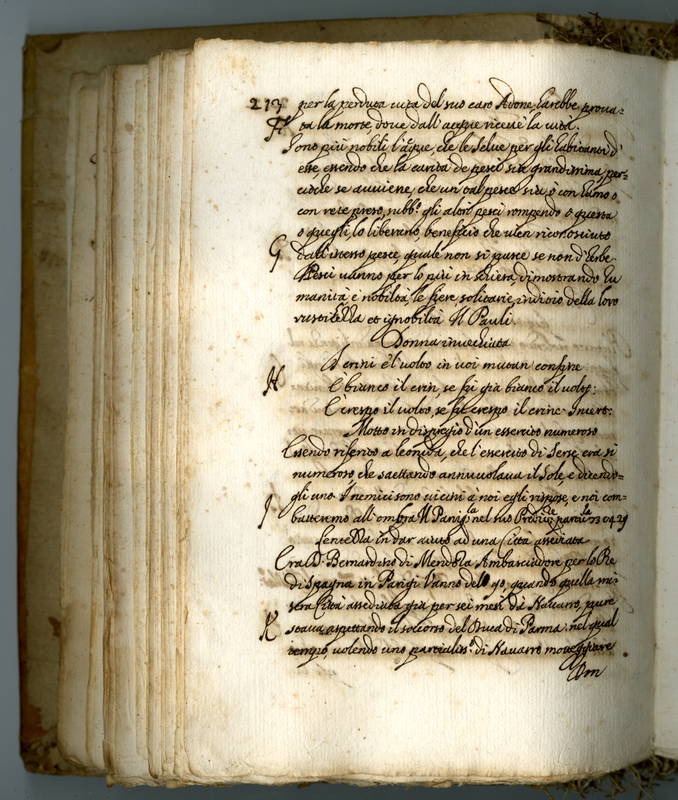 213 per la perduta vita del suo caro Adone, harebbe prova-
ta la morte dove dall'acque riceve la vita.
F Sono più nobili l'acque, che le selve per gli habitanti d'
esse, essendo che la carità de pesci sia grandissima, per-
cioche se avviene, che un tal pesce sia, ò con hamo ò
con rete preso, subbo. gli altri pesci rompendo ò questa
o quegli, lo liberano, beneficio che vien riconosciuto
G dall'istesso pesce, quale non si pasce se non d'herbe
Pesci vanno per lo più in schiera, dimostrando hu
manità è nobiltà, le fiere solitarie, inditio della loro
rustichella et ignobiltà. Il Pauli.
Donna invechiata
I crini è l'volto in voi mutan confine
H È bianco il crin, se fù già bianco il volto:
È crespo il volto, se fù crespo il crine. Incert:
Motto in dispregio d'un essercito numeroso
Essendo riferito a leonida, che l'essercito di Serse era sì
numeroso, che saettando annuvolava il Sole, e dicendo-
gli uno I nemici sono vicini a noi egli rispose, e noi com-
I batteremo all'ombra. Il Parig. nel suo
Sentella in dar aiuto ad una Città assediata
Era D. Bernardino di Mendoza Ambasciadore per lo Re
di Spagna in Parigi l'anno del 90, quando quella mi-
sera Città assediata già per sei mesi dà Navarro, pure
K stava aspettando il soccorso del Duca di Parma: nel qual
tempo, volendo uno partialiss.o di Navarro
Don